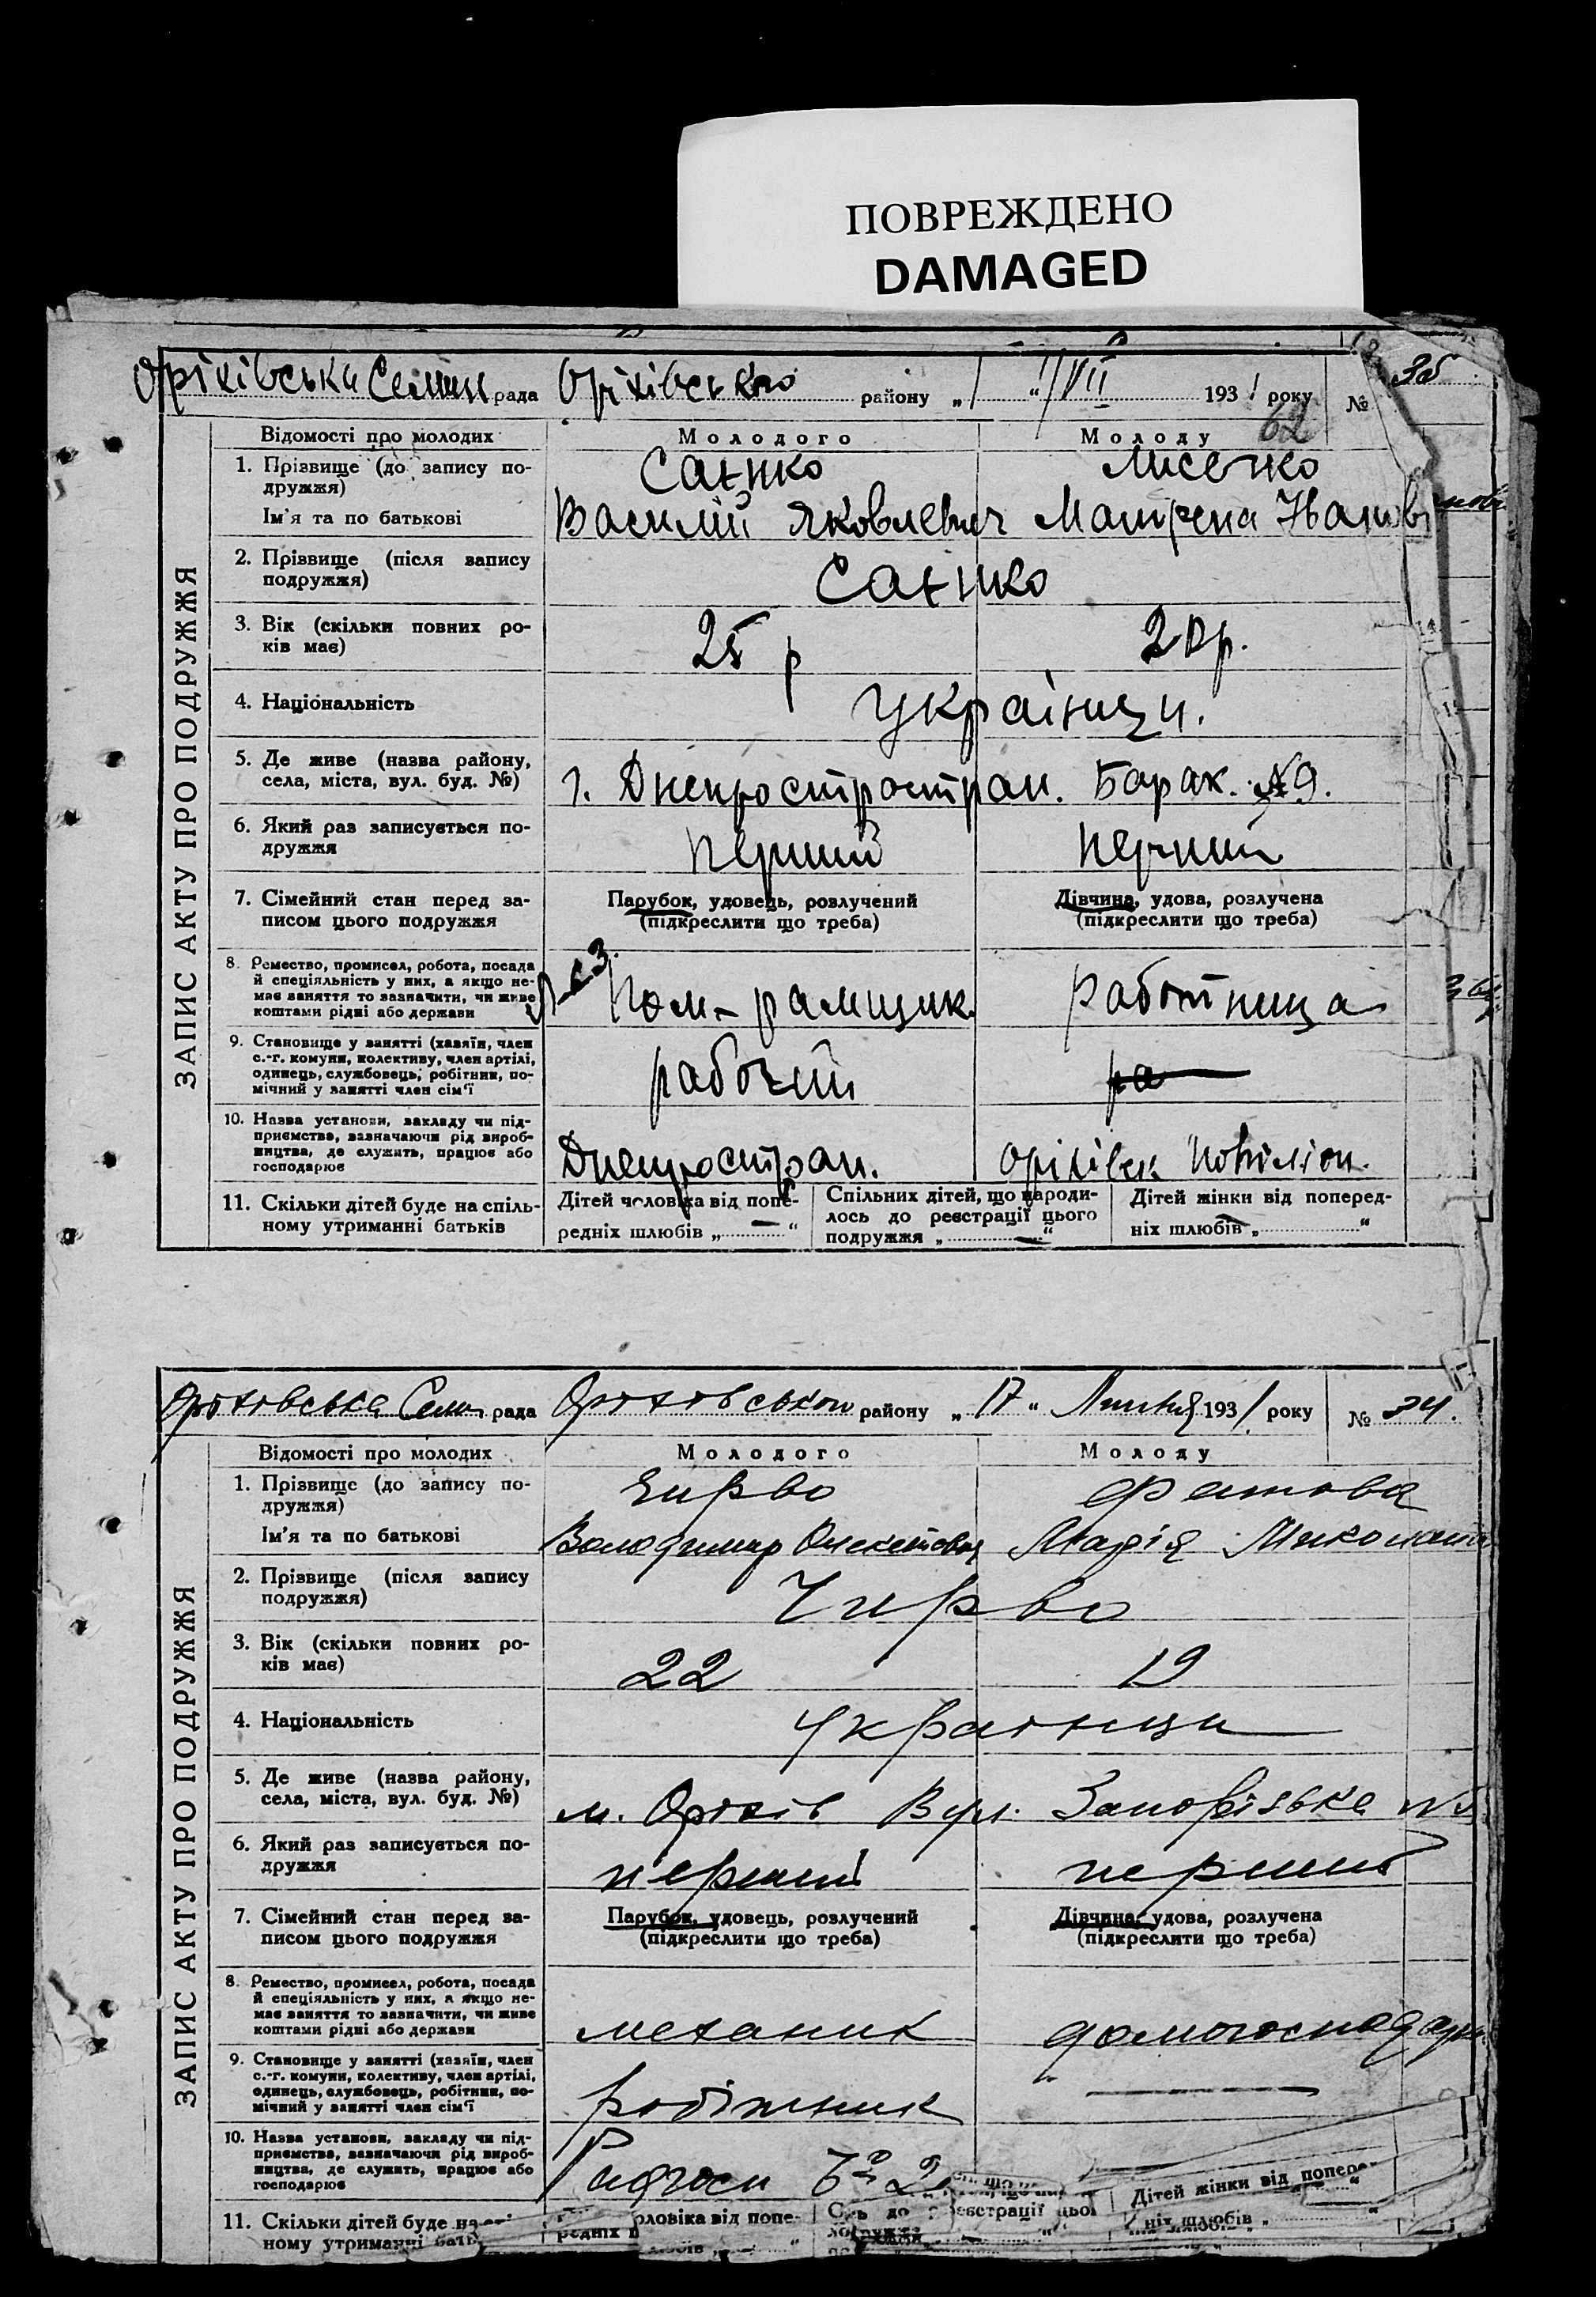 ПОВРЕЖДЕНО
DAMAGED
Оріхівська Селищ рада Оріхівського району „1“ VII 1931 року №
62
ЗАПИС АКТУ ПРО ПОДРУЖЖЯ
Відомості про молодих Молодого Молоду
1. Прізвище (до запису по-
дружжя) Саєнко Лисенко
Ім'я та по батькові Василій Яковлевич Матрена Іванов
2. Прізвище (після запису
подружжя) Саєнко
3. Вік (скільки повних ро-
ків має) 25 р 20 р.
4. Національність Українци.
5. Де живе (назва району,
села, міста, вул. буд. №) Барак. №9.
6. Який раз записується по-
дружжя перший перший
7. Сімейний стан перед за-
писом цього подружжя
Парубок, удовець, розлучений
(підкреслити що треба)
Дівчина, удова, розлучена
(підкреслити що треба)
8. Ремество, промисел, робота, посада
й спеціяльність у них, а якщо не-
має заняття то зазначити, чи живе
коштами рідні або держави
Пом. рамщик работница
9. Становище у занятті (хазяїн, член
с.-г. комуни, колективу, член артілі,
одинець, службовець, робітник, по-
мічний у занятті член сім'ї
рабочий ра
10. Назва установи, закладу чи під-
приємства, зазначаючи рід вироб-
ництва, де служить, працює або
господарює
Оріхівск
11. Скільки дітей буде на спіль-
ному утриманні батьків
Дітей чоловіка від попе-
редніх шлюбів „ — “
Спільних дітей, що народи-
лось до реєстрації цього
подружжя „ — “
Дітей жінки від поперед-
ніх шлюбів „ — “
Оріхівська Селищ рада Оріхівського району „17“ Липня 1931 року № 34.
ЗАПИС АКТУ ПРО ПОДРУЖЖЯ
Відомості про молодих Молодого Молоду
1. Прізвище (до запису по-
дружжя) Чирво
Ім'я та по батькові Володимир Олексійович Марія
2. Прізвище (після запису
подружжя) Чирво
3. Вік (скільки повних ро-
ків має) 22 19
4. Національність Українци
5. Де живе (назва району,
села, міста, вул. буд. №) м. Оріхів Вул. Запорізька №
6. Який раз записується по-
дружжя перший перший
7. Сімейний стан перед за-
писом цього подружжя
Парубок, удовець, розлучений
(підкреслити що треба)
Дівчина, удова, розлучена
(підкреслити що треба)
8. Ремество, промисел, робота, посада
й спеціяльність у них, а якщо не-
має заняття то зазначити, чи живе
коштами рідні або держави
механик домогосподарка
9. Становище у занятті (хазяїн, член
с.-г. комуни, колективу, член артілі,
одинець, службовець, робітник, по-
мічний у занятті член сім'ї
робітник —
10. Назва установи, закладу чи під-
приємства, зазначаючи рід вироб-
ництва, де служить, працює або
господарює
Радгосп
11. Скільки дітей буде на
ному утриманні
від попе-
редніх
до реєстрації
Дітей жінки від
ніх шлюбів „ “